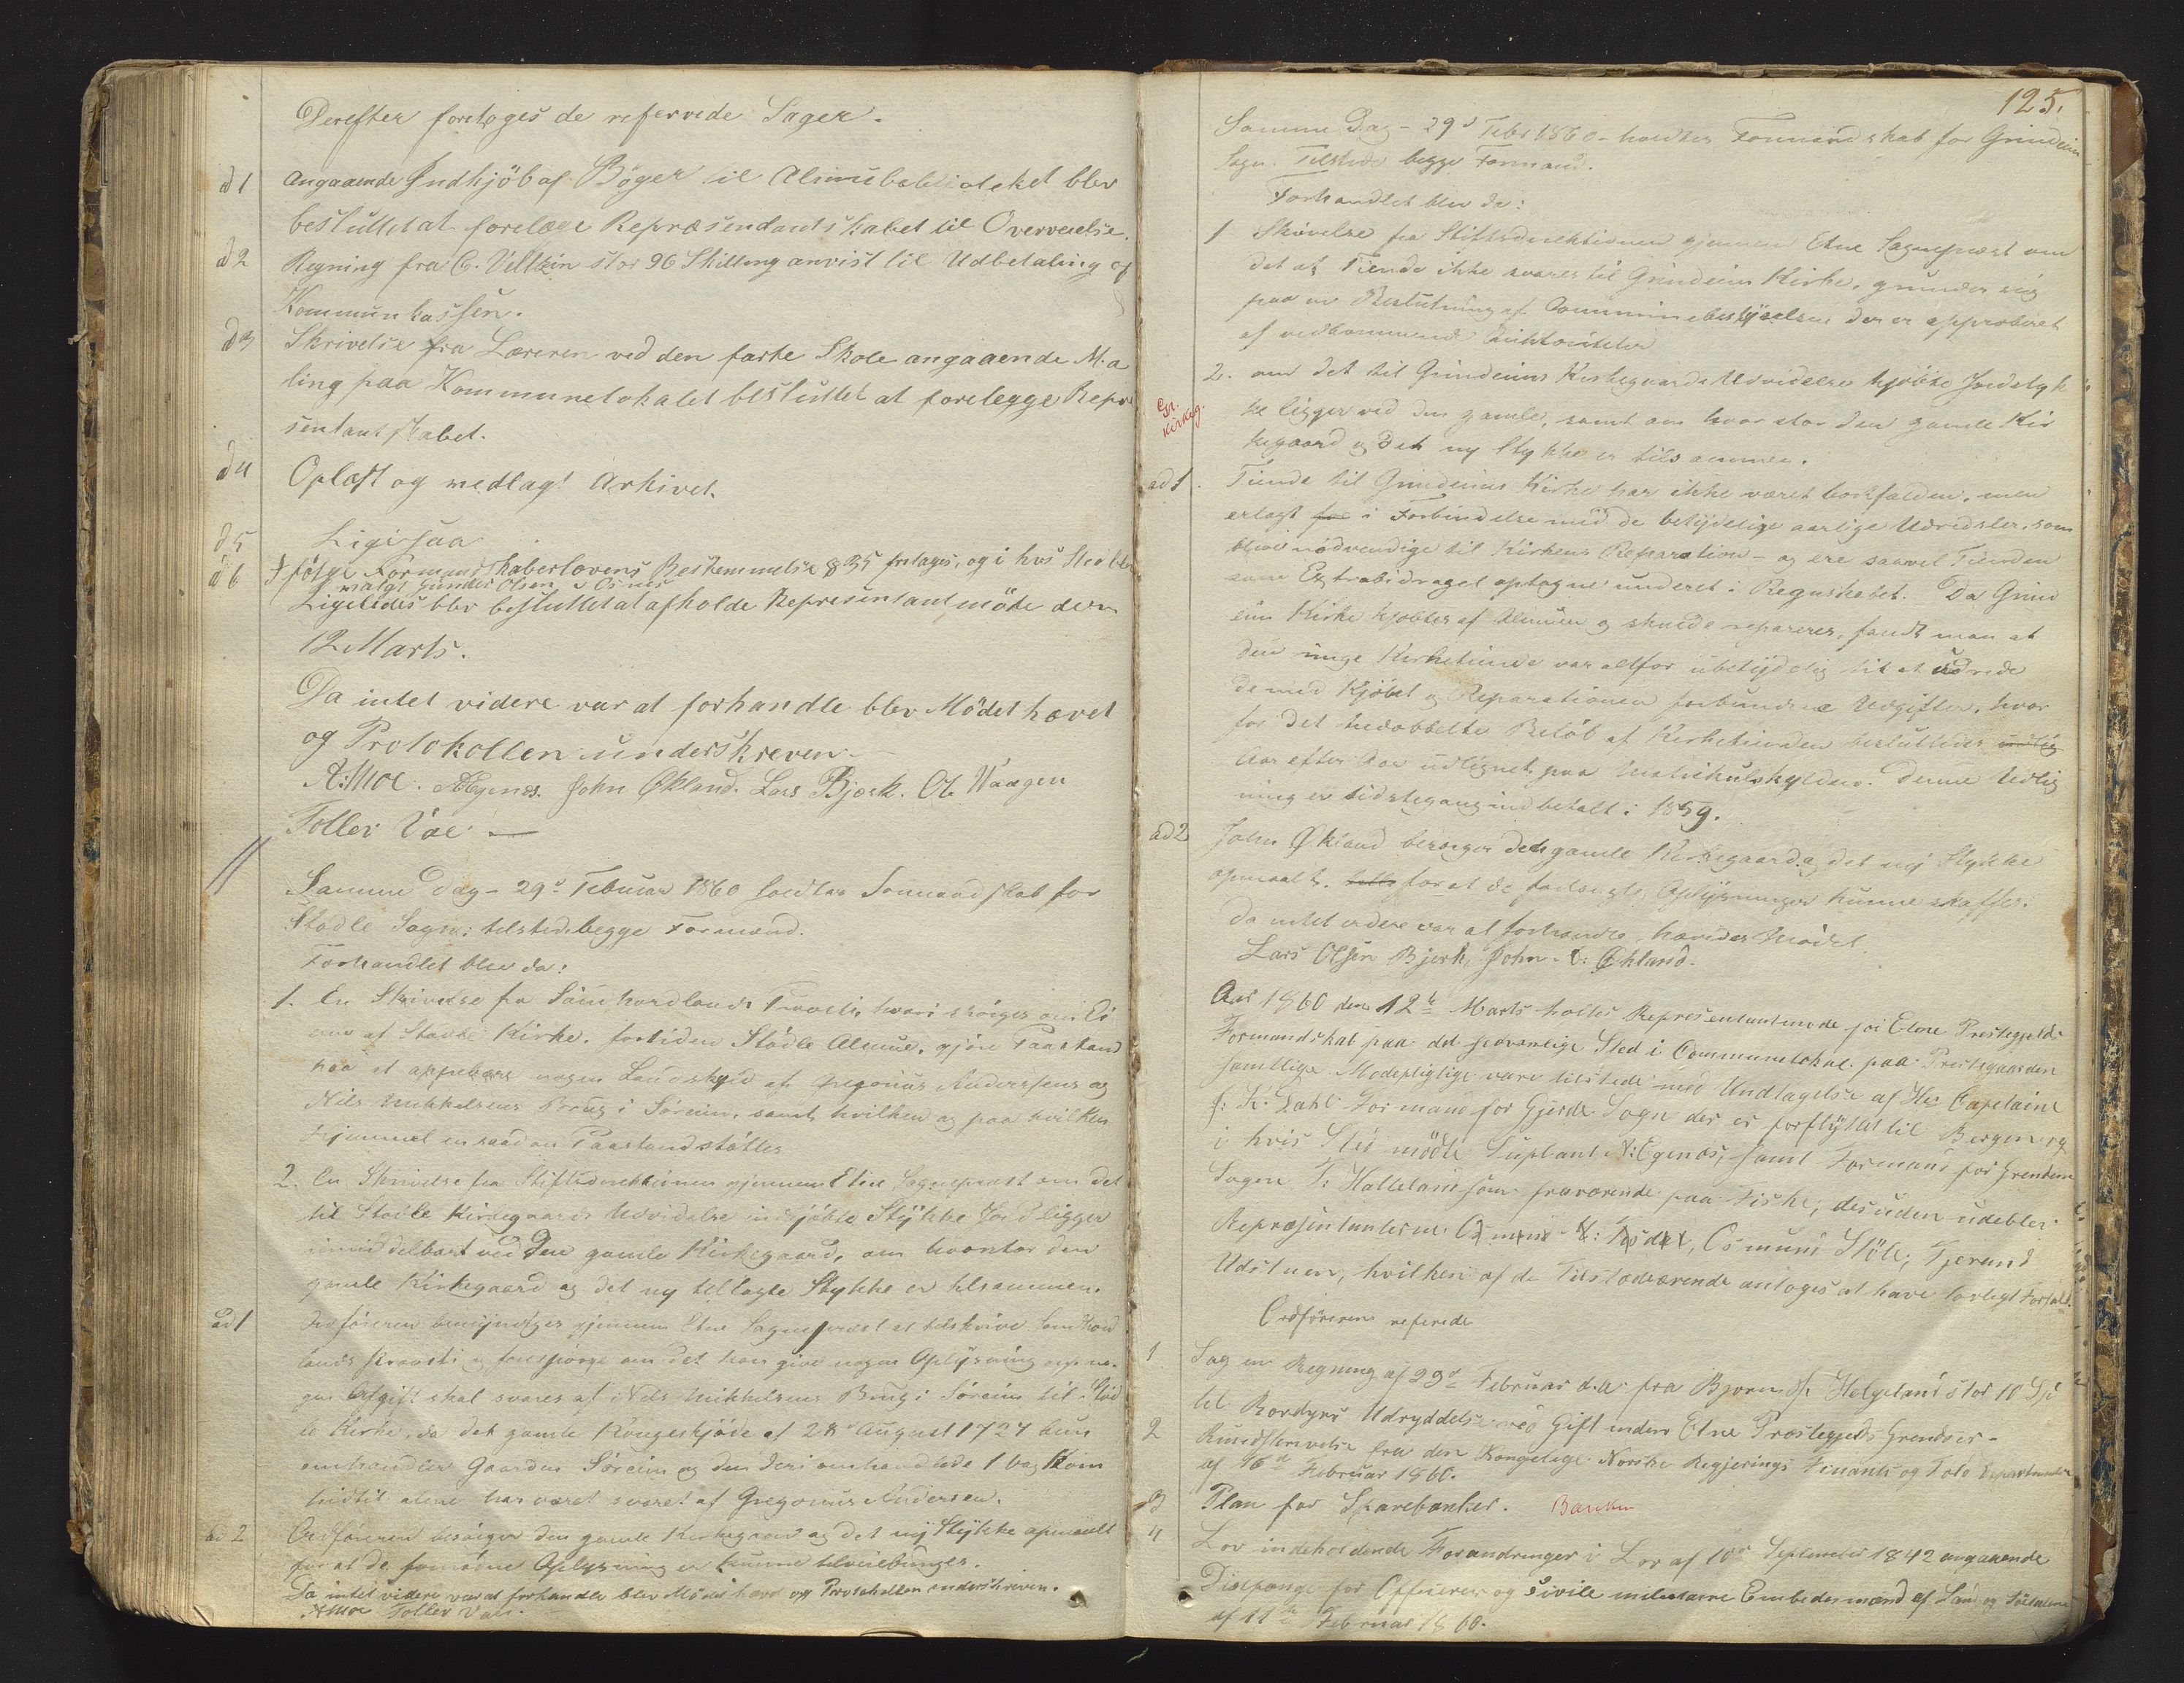 Derefter foretoges de refererede Sager.
ad 1 angaaende Indkjöb af Böger til Almuebibliotheket blev
besluttet at forelæge Repræsendantskabet til Overveielse.
ad 2 Regning fra C. Veltzin stor 96 Skilling anvist til Udbetaling af
Kommunkassen.
ad 3 Skrivelse fra Læreren ved den faste Skole angaaende Ma
ling paa Kommunelokalet besluttet at forelegge Repræ
sentantskabet.
ad 4 Oplæst og nedlagt Arkivet.
ad 5 Ligesaa
ad 6 Ifölge Formandskaberlovens Bestemmelse § 35 fratages, og i hvis Sted blev
valgt Gunder Olsen
Ligeledes blev besluttet at afholde Representantmöte den
12 Marts.
Da intet videre var at forhandle blev Mödet hævet
og Protokollen underskreven
A: Moe. AEgenæs. John Økland. Lars Bjærk. Ole Waagen
Tollei Vae
Samme Dag - 29d Febuar 1860 holdtes Formandskab for
Stødle Sogn: tilstede begge Formænd.
Forhandlet blev da:
1. En Skrivelse fra Söndhordlands Provsti, hvori spörges om Ei
erne af Stødle Kirke, fortiden Stödle Almue, gjöre Paastand
paa at oppebære nogen Landskyld af Gregorius Anderssens og
Nils Mikkelsens Brug i Söreim, samt hvilken og paa hvilken
Hjemmel en saadan Paastand støttes
2. En Skrivelse fra Stiftsdirektionen gjennem Etne Sognepræst om det
til Stødle Kirkegaards Udvidelse indkjöbte Stÿkke Jord ligger
umiddelbart ved den gamle Kirkegaard, om hvorstor den
gamle Kirkegaard og det ny tillagte Stykke er tilsammen.
ad 1 Ordföreren bemyndiges gjennem Etne Sognepræst at tilskrive Söndhord
lands Provsti og forespørge om det kan give nogen Oplÿsning om no-
gen Afgift skal svares af Nils Mikkelsens Brug i Söreim til Stød
le Kirke, da det gamle Kongeskjöde af 28d August 1727 kun
omhandler Gaarden Söreim og den deri omhandlede 1 vog Korn
hidtil alene har været svaret af Gregorius Andersen.
ad 2 Ordföreren besörger den gamle Kirkegaard og det nÿ Stÿkke opmaalt
for at de fornödne Oplysninger kunne tilveiebringes.
Da intet videre var at forhandle blev Mödet hævet og Protokollen underskreven.
A Moe Tollei Vae.
125.
Samme Dag - 29d Febr 1860 - holdtes Formandskab for Grindeim
Sogn. Tilstede begge Formænd.
Forhandlet blev da:
1 Skrivelse fra Stiftsdirektionen gjennem Etne Sognepræst om
det at Tiende ikke svares til Grindeims Kirke, grunder sig
paa en Beslutning af Communebestÿrelsen der er approberet
af vedkommende Auktoriteter
2. om det til Grindeims Kirkegaards Udvidelse kjöbte Jordstyk
ke ligger ved den gamle, samt om hvor stor den gamle Kir
kegaard og det ny Stykke er tilsammen.
Gr.
Kirkeg.
ad 1. Tiende til Grindeims Kirke har ikke været bortfalden, men
erlagt for i Forbindelse med de betÿdelige aarlige Udredsler, som
bleve nødvendige til Kirkens Reparation - og ere saavel Tienden
som Extrabidraget optagne underet i Regnskabet. Da Grind
eims Kirke kjøbtes af Almuen og skulde repareres, fandt man at
den ringe Kirketiende var altfor ubetÿdelig til at udrede
de med Kjöbet og Reparationen forbundne Udgifter, hvor
for det tredobbelte Belöb af Kirketienden besluttedes udlig
Aar efter Aar udlignet paa Matrikulskylden. Denne Udlig
ning er sidstegang indbetalt i 1859.
ad 2 John Økland besørger den gamle Kirkegaard og det nÿ Stykke
opmaalt, for at de forlangte Oplysninger kunne skaffes.
da intet videre var at forhandle, hævedes Mödet
Lars Olsen Bjerk, John L: Økland.
Aar 1860 den 12te Marts holtes Representantmøde for Etne Prestegjelds
Formandskab paa det sedvanlige Sted i Communelokal. paa Prestegaarden
samtlige Mødepligtige vare tilstede med Undtagelse af Hr Capelaine
f: K: Dahl Formand for Gjerde Sogn der er forflÿttet til Bergen og
i hvis Sted mödte Suplant N: Egenæs, samt Formand for Grendem
Sogen T: Halleland som fraværende paa Fiske, desuden udebleve
Repræsentanterne Osmund Stöle, Tjerand
Udstuen, hvilken af de Tilstedeværende antoges at have lovligt Forfald.
Ordföreren referede
1 Sag en Regning af 29d Februar d.a. fra Bjorn Helgeland stor 10 Spd
til Rovdyrs Udryddelse ved Gift inden Etne Præstegjelds Grendser.
2 Rundskrivelse fra den Kongelige Norske Regjerings Finants og Told Departement
af 16de Februar 1860.
3 Plan for Sparebanker. Banken
4 Lov indeholdende Forandringer i Lov af 10de September 1842 angaaende
Dispange for Officerer og sivile militaire Embedsmænd af Land og Söetaten
af 11te Februar 1860.